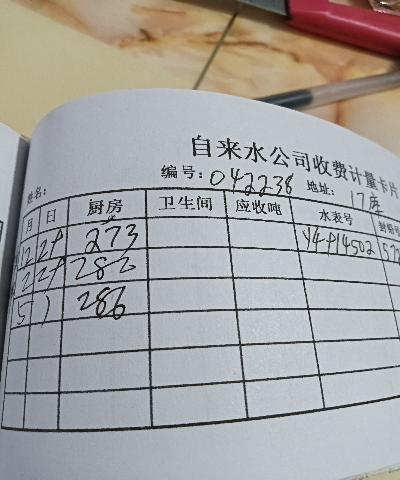 自来水公司收费计量卡片
姓名: 编号:042238 地址: 17库
月 日 厨房 卫生间 应收吨 水表号
12 24 273
2 24 282
5 1 286